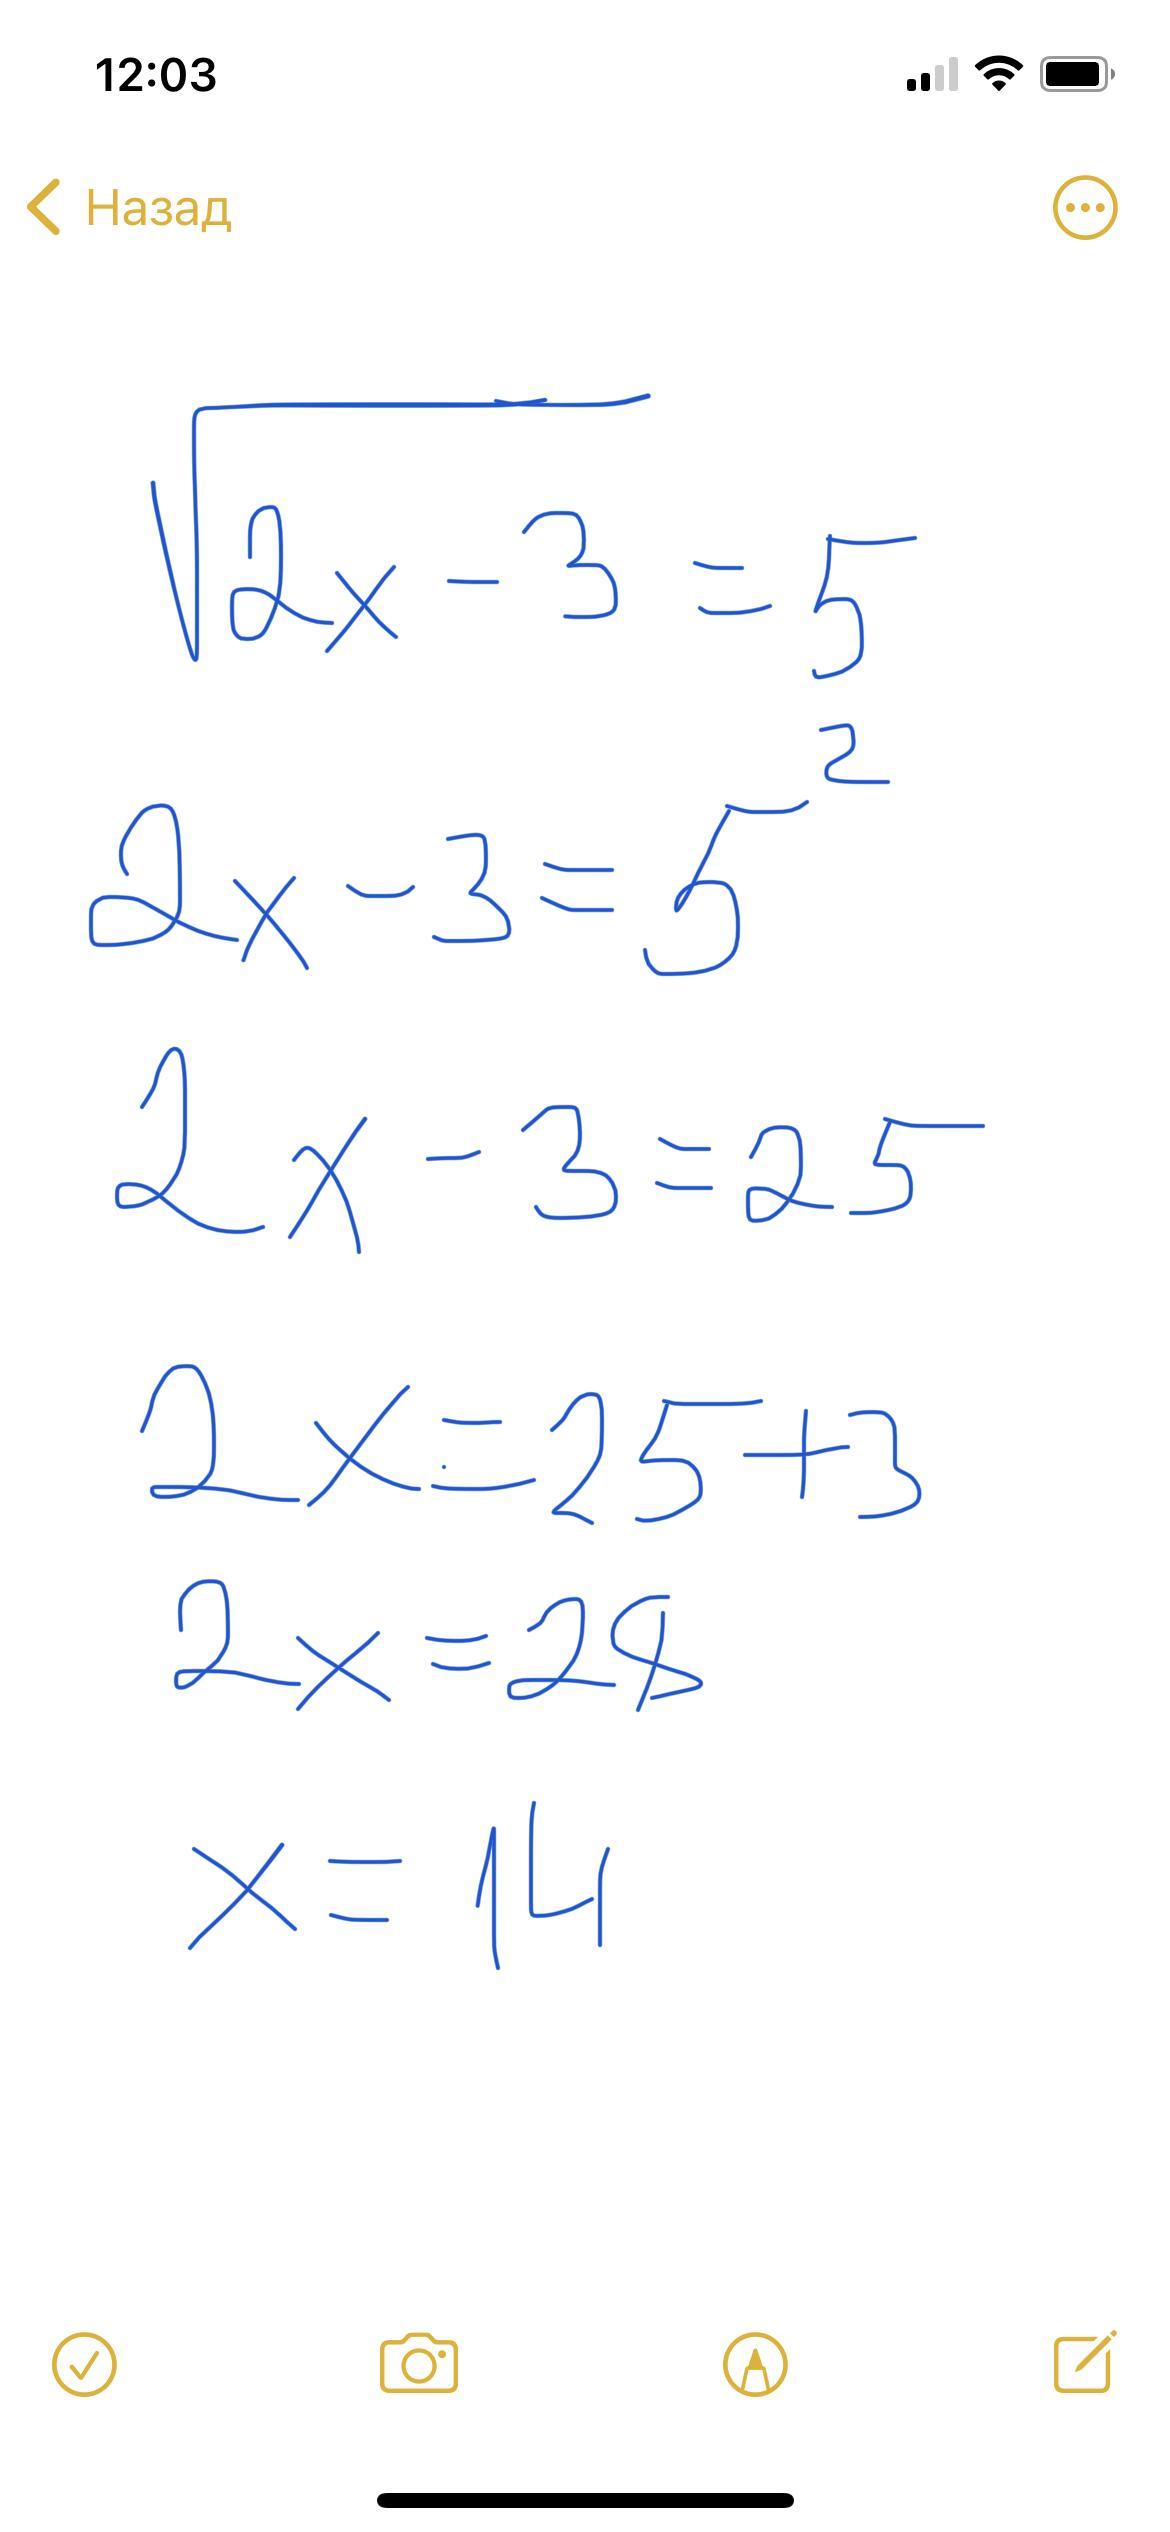 12:03
Назад
√2x - 3 = 5
2x - 3 = 5²
2x - 3 = 25
2x = 25 + 3
2x = 28
x = 14